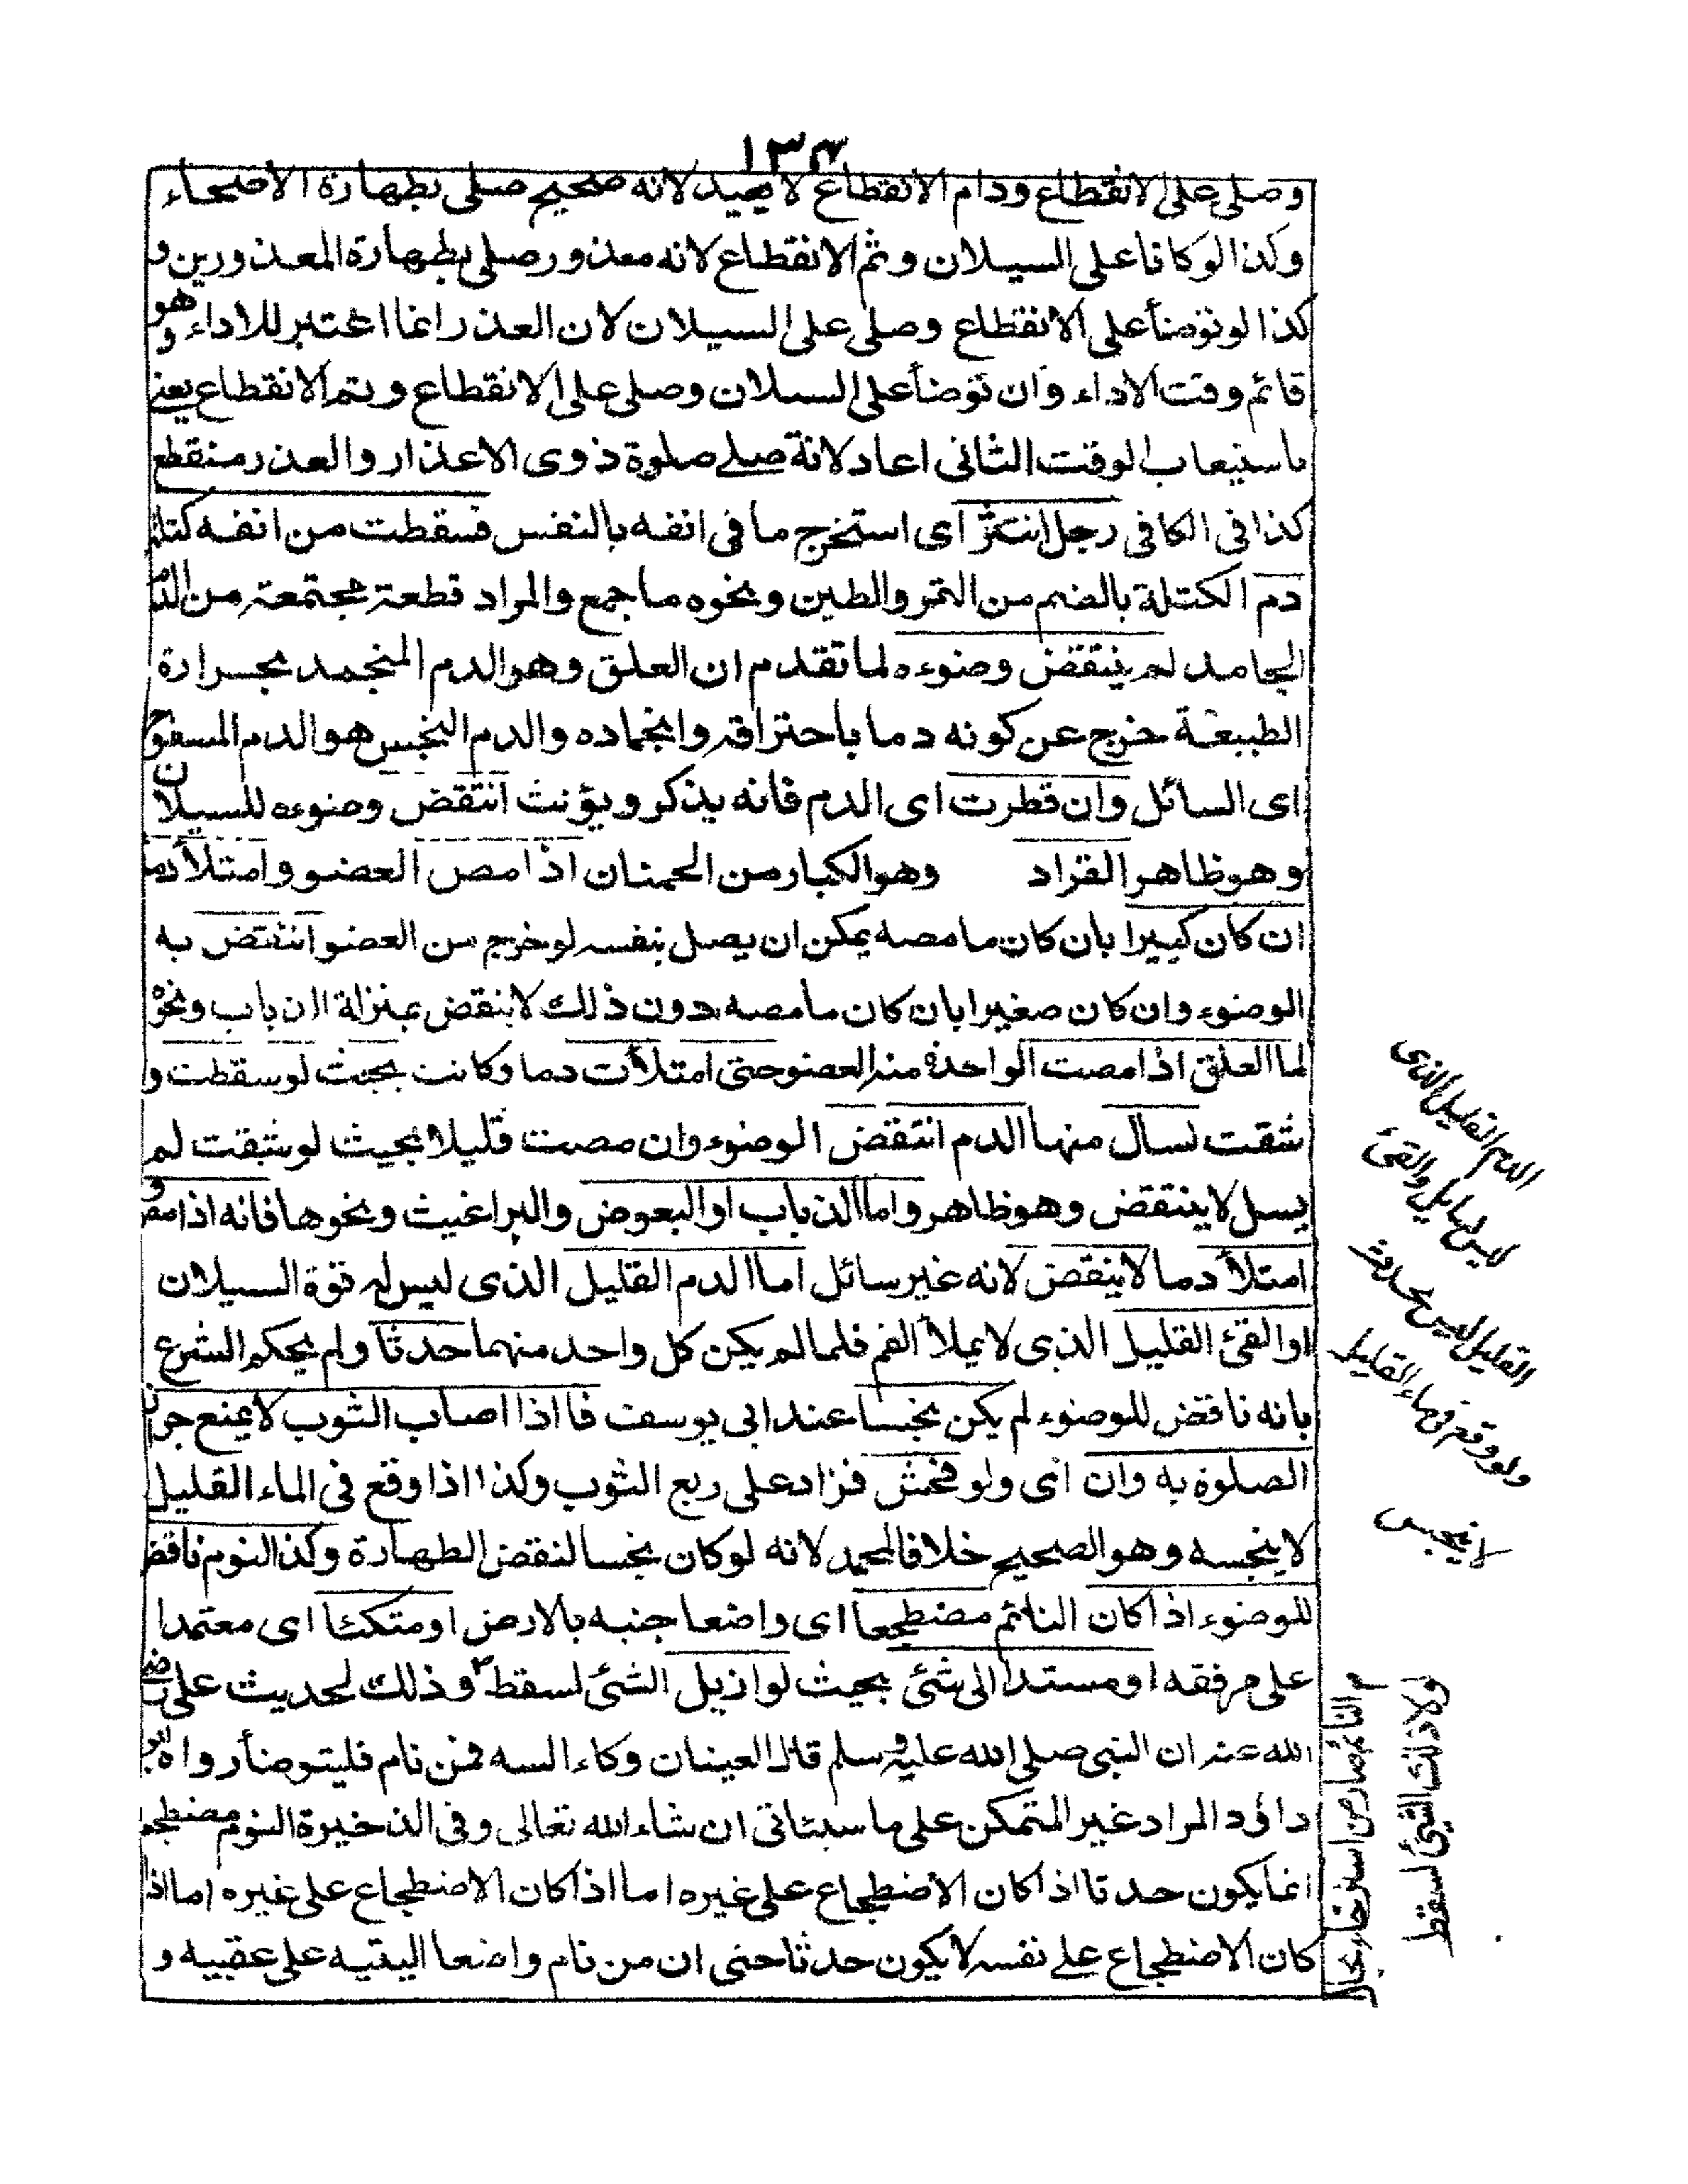 ١٣٤
وصلى على الانقطاع ودام الانقطاع لا يعيد لانه صحيح صلى بطهارة الاصحاء
وكذا لو كانا على السيلان وثم الانقطاع لانه معذور صلى بطهارة المعذورين و
كذا لو توضأ على الانقطاع وصلى على السيلان لان العذر انما اعتبر للاداء وهو
قائم وقت الاداء وان توضأ على السيلان وصلى على الانقطاع ويتم الانقطاع يعنى
باستيعاب الوقت الثانى اعاد لانة صلے صلوة ذوى الاعذار والعذر منقطع
كذا فى الكافى رجل انتثر اى استخرج ما فى انفه بالنفس فسقطت من انفه كتلة
دم الكتلة بالضم من التمر والطين ونحوه ما جمع والمراد قطعة مجتمعة من الدم
الجامد لم ينتقض وضوءه لما تقدم ان العلق وهو الدم المنجمد بحرارة
الطبيعة خرج عن كونه دما باحتراقه وانجماده والدم النجس هو الدم المسفوح
اى السائل وان قطرت اى الدم فانه يذكر ويؤنث انتقض وضوءه للسيلان
وهو ظاهر القراد وهو الكبار من الحمنان اذا مص العضو وامتلأ دما
ان كان كبيرا بان كان ما مصه يمكن ان يصل بنفسه لو خرج من العضو انتقض به
الوضوء وان كان صغيرا بان كان ما مصه دون ذلك لا ينقض بمنزلة الذباب ونحوه
اما العلق اذا مصت الواحدة منه العضو حتى امتلأت دما وكانت بحيث لو سقطت و
شقت لسال منها الدم انتقض الوضوء وان مصت قليلا بحيث لو شقت لم
يسل لا ينتقض وهو ظاهر واما الذباب او البعوض والبراغيث ونحوها فانه اذا مص و
امتلأ دما لا ينقض لانه غير سائل اما الدم القليل الذى ليس له قوة السيلان
او القئ القليل الذى لا يملأ الفم فلما لم يكن كل واحد منهما حدثا ولم يحكم الشرع
بانه ناقض للوضوء لم يكن نجسا عند ابى يوسف فا اذا اصاب الثوب لا يمنع جواز
الصلوة به وان اى ولو فحش فزاد على ربع الثوب وكذا اذا وقع فى الماء القليل
لا ينجسه وهو الصحيح خلافا لمحمد لانه لو كان نجسا لنقض الطهارة وكذا النوم ناقض
للوضوء اذا كان النائم مضطجعا اى واضعا جنبه بالارض او متكئا اى معتمدا
على مرفقه او مستدا الى شئ بحيث لو ازيل الشئ لسقط وذلك لحديث على رضى
الله عنه ان النبى صلى الله عليه وسلم قال العينان وكاء السه فمن نام فليتوضأ رواه ابو
داؤد المراد غير المتمكن على ما سيئاتى ان شاء الله تعالى وفى الذخيرة النوم مضطجعا
انما يكون حدثا اذا كان الاضطجاع على غيره اما اذا كان الاضطجاع على غيره اما اذا
كان الاضطجاع علے نفسه لا يكون حدثا حتى ان من نام واضعا اليتيه على عقبيه و
الدم القليل الذى
ليس بسايل والقئ
القليل ليس بحدث
ولو وقع فى ماء القليل
لا ينجس
ولا ذلك الشئ لسقط